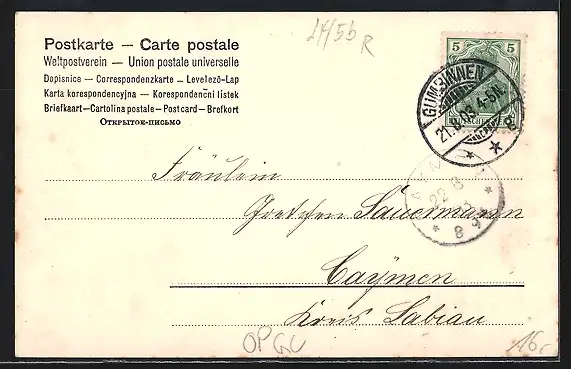 Postkarte — Carte postale
Weltpostverein — Union postale universelle
Dopisnice — Correspondenzkarte — Levelező-Lap
Karta korespondencyjna — Korespondenční lístek
Briefkaart — Cartolina postale — Postcard — Brefkort
Открытое-письмо
24/5b
R
5 5
GUMBINNEN
21.8.03.4-5N.
Fräulein
22 8
Gretchen Sauermann
Caÿmen
Kreis Labiau
OP
16,-